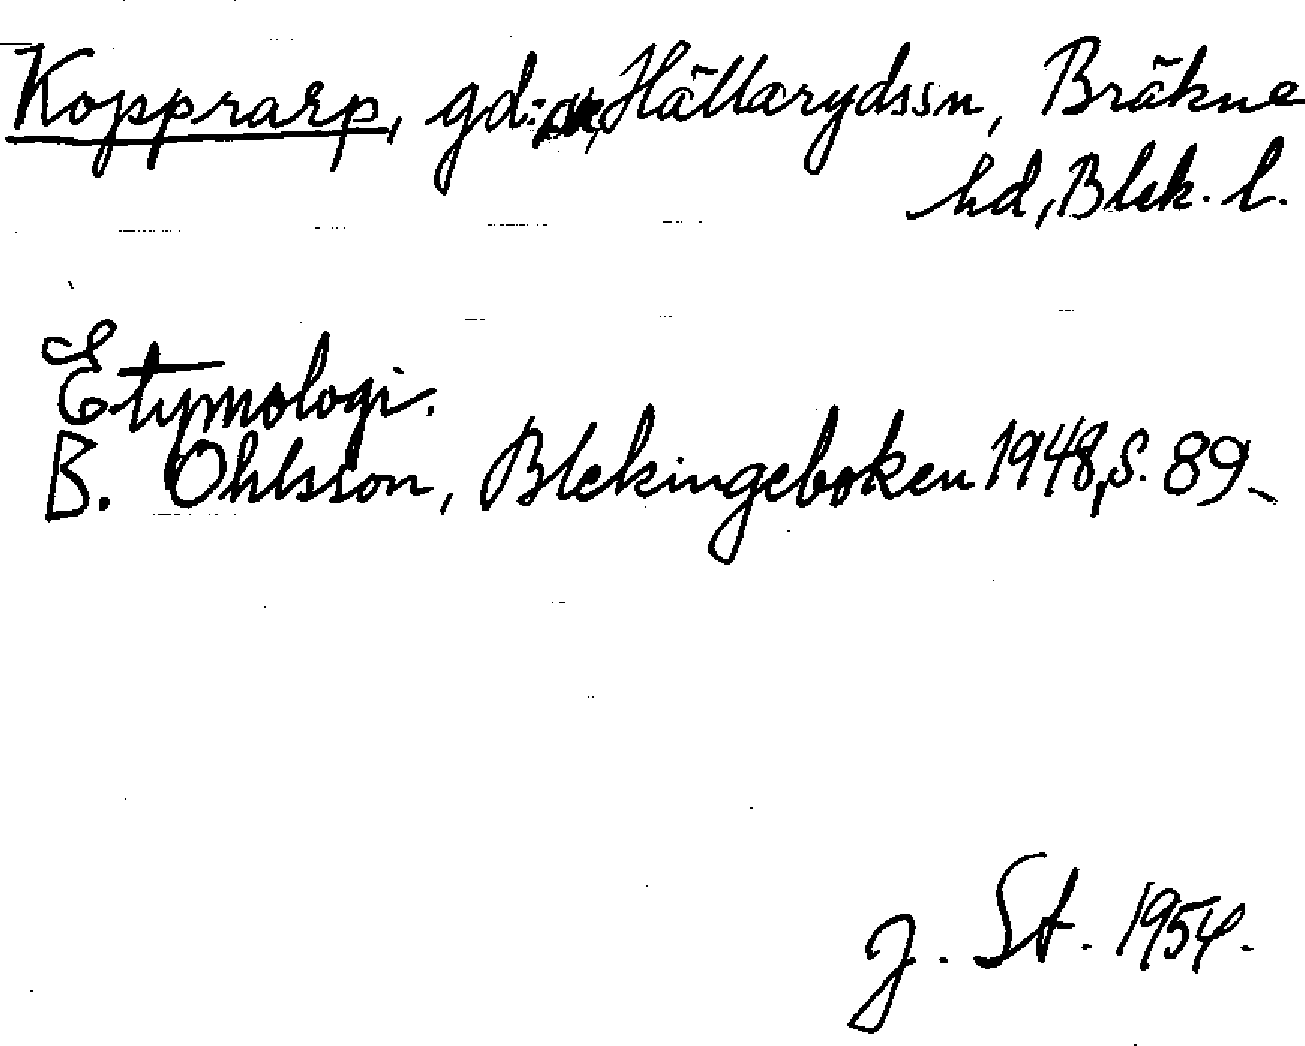 Kopprarp, gd: Hällarydssn, Bräkne
hd, Blek. l.
Etymologi.
B. Ohlsson, Blekingeboken 1948, S. 89.
J. St. 1954.